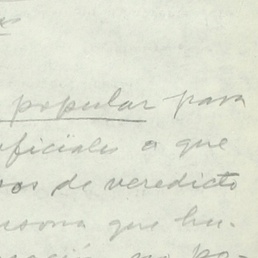 popular para
oficiales o que
sos de veredicto
ersona que hu-
no po-